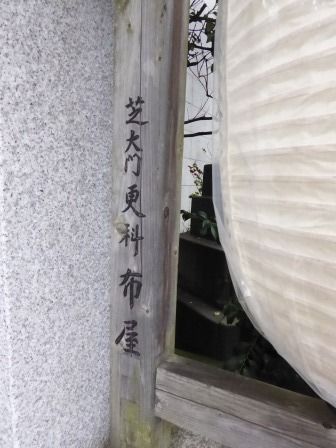 芝大門更科布屋